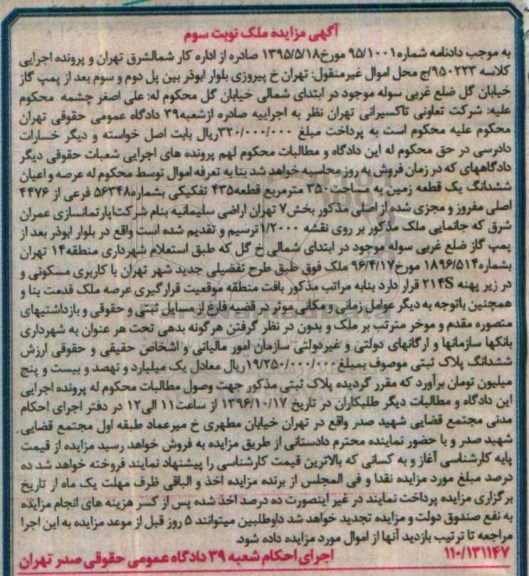 آگهی مزایده ملک نوبت سوم
به موجب دادنامه شماره ۹۵/۱۰۰۱ مورخ ۱۳۹۵/۵/۱۸ صادره از اداره کار شمالشرق تهران و پرونده اجرایی
کلاسه ۹۵۰۲۲۳/ج محل اموال غیرمنقول: تهران خ پیروزی بلوار ابوذر بین پل دوم و سوم بعد از پمپ گاز
خیابان گل ضلع غربی سوله موجود در ابتدای شمالی خیابان گل محکوم له: علی اصغر چشمه محکوم
علیه: شرکت تعاونی تاکسیرانی تهران نظر به اجراییه صادره ازشعبه ۳۹ دادگاه عمومی حقوقی تهران
محکوم علیه محکوم است به پرداخت مبلغ ۳۲۰/۰۰۰/۰۰۰ریال بابت اصل خواسته و دیگر خسارات
دادرسی در حق محکوم له این دادگاه و مطالبات محکوم لهم پرونده های اجرایی شعبات حقوقی دیگر
دادگاههای که در زمان فروش به روز محاسبه خواهد شد بنا به تعرفه اموال توسط محکوم له عرصه و اعیان
ششدانگ یک قطعه زمین به مساحت ۳۵۰ مترمربع قطعه ۴۳۵ تفکیکی بشماره ۵۶۳۴۸ فرعی از ۴۴۷۶
اصلی مفروز و مجزی شده از اصلی مذکور بخش ۷ تهران اراضی سلیمانیه بنام شرکت آپارتمانسازی عمران
شرق که جانمایی ملک مذکور بر روی نقشه ۱/۲۰۰۰ ترسیم و تقدیم شده است واقع در بلوار ابوذر بعد از
پمپ گاز ضلع غربی سوله موجود در ابتدای شمالی خ گل که طبق استعلام شهرداری منطقه ۱۴ تهران
بشماره ۱۸۹۶/۵۱۴ مورخ ۹۶/۴/۱۷ ملک فوق طبق طرح تفضیلی جدید شهر تهران با کاربری مسکونی و
در زیر پهنه ۲۱۴S قرار دارد بنابه مراتب مذکور بافت منطقه موقعیت قرارگیری عرصه ملک قدمت بنا و
همچنین باتوجه به دیگر عوامل زمانی و مکانی موثر در قضیه فارغ از مسایل ثبتی و حقوقی و بازداشتیهای
متصوره مقدم و موخر مترتب بر ملک و بدون در نظر گرفتن هرگونه بدهی تحت هر عنوان به شهرداری
بانکها سازمانها و ارگانهای دولتی و غیردولتی سازمان امور مالیاتی و اشخاص حقیقی و حقوقی ارزش
ششدانگ پلاک ثبتی موصوف بمبلغ ۱۹/۲۵۰/۰۰۰/۰۰۰ریال معادل یک میلیارد و نهصد و بیست و پنج
میلیون تومان برآورد که مقرر گردیده پلاک ثبتی مذکور جهت وصول مطالبات محکوم له پرونده اجرایی
این دادگاه و مطالبات دیگر طلبکاران در تاریخ ۱۳۹۶/۱۰/۱۷ از ساعت ۱۱ الی ۱۲ در دفتر اجرای احکام
مدنی مجتمع قضایی شهید صدر واقع در تهران خیابان مطهری خ میرعماد طبقه اول مجتمع قضایی
شهید صدر و با حضور نماینده محترم دادستانی از طریق مزایده به فروش خواهد رسید مزایده از قیمت
پایه کارشناسی آغاز و به کسانی که بالاترین قیمت کارشناسی را پیشنهاد نمایند فروخته خواهد شد ده
درصد مبلغ مورد مزایده نقدا و فی المجلس از برنده مزایده اخذ و الباقی ظرف مهلت یک ماه از تاریخ
برگزاری مزایده پرداخت نمایند در غیر اینصورت ده درصد اخذ شده پس از کسر هزینه های انجام مزایده
به نفع صندوق دولت و مزایده تجدید خواهد شد داوطلبین میتوانند ۵ روز قبل از موعد مزایده به این اجرا
مراجعه تا ترتیب بازدید آنها از اموال مورد مزایده داده شود.
۱۱۰/۱۳۱۱۴۷ اجرای احکام شعبه ۳۹ دادگاه عمومی حقوقی صدر تهران